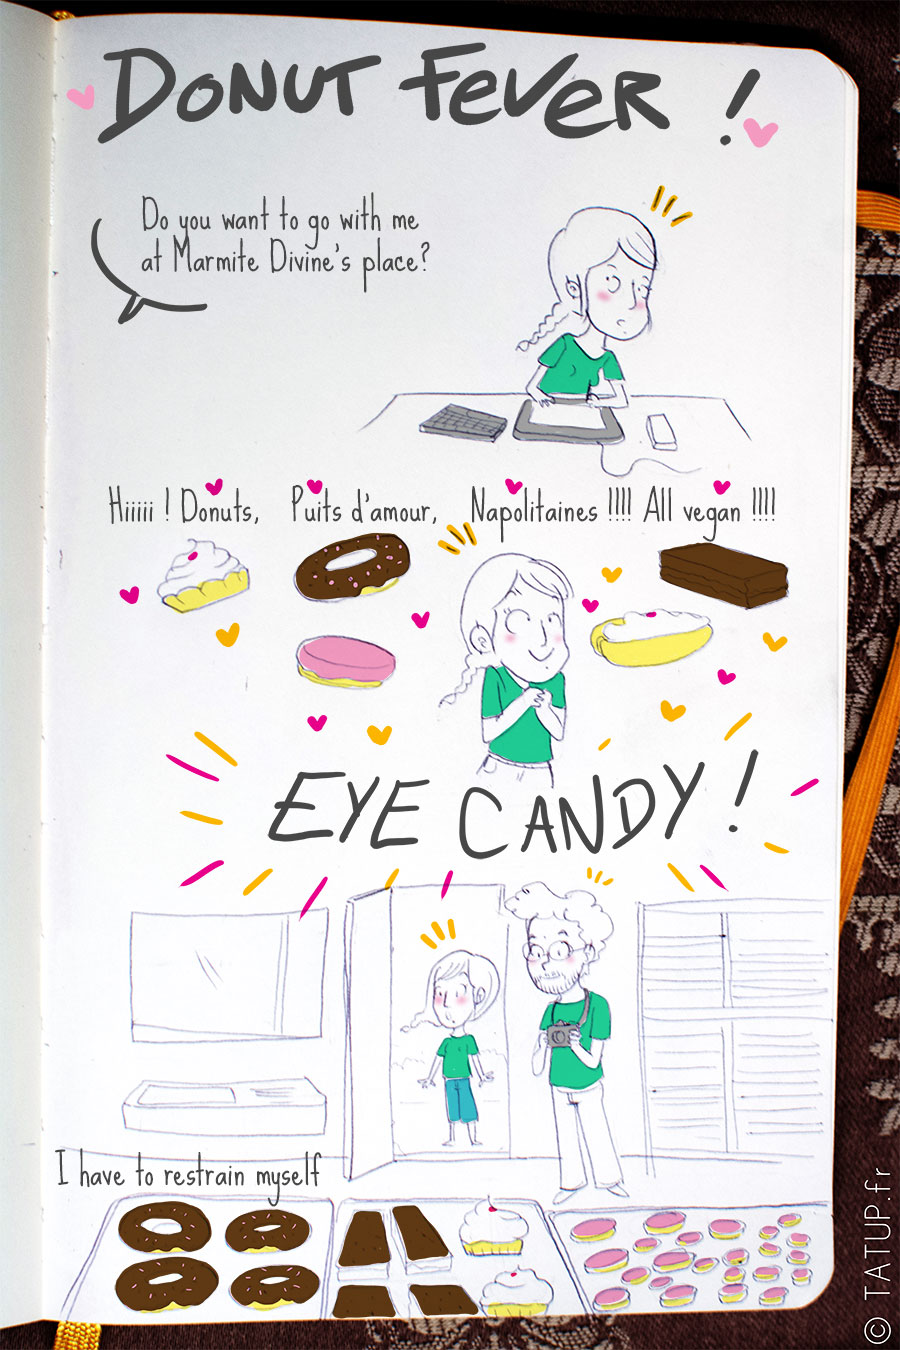 DONUT FEVER !
Do you want to go with me
at Marmite Divine's place?
Hiiiii ! Donuts, Puits d'amour, Napolitaines !!!! All vegan !!!!
EYE CANDY !
I have to restrain myself
© TATUP.fr